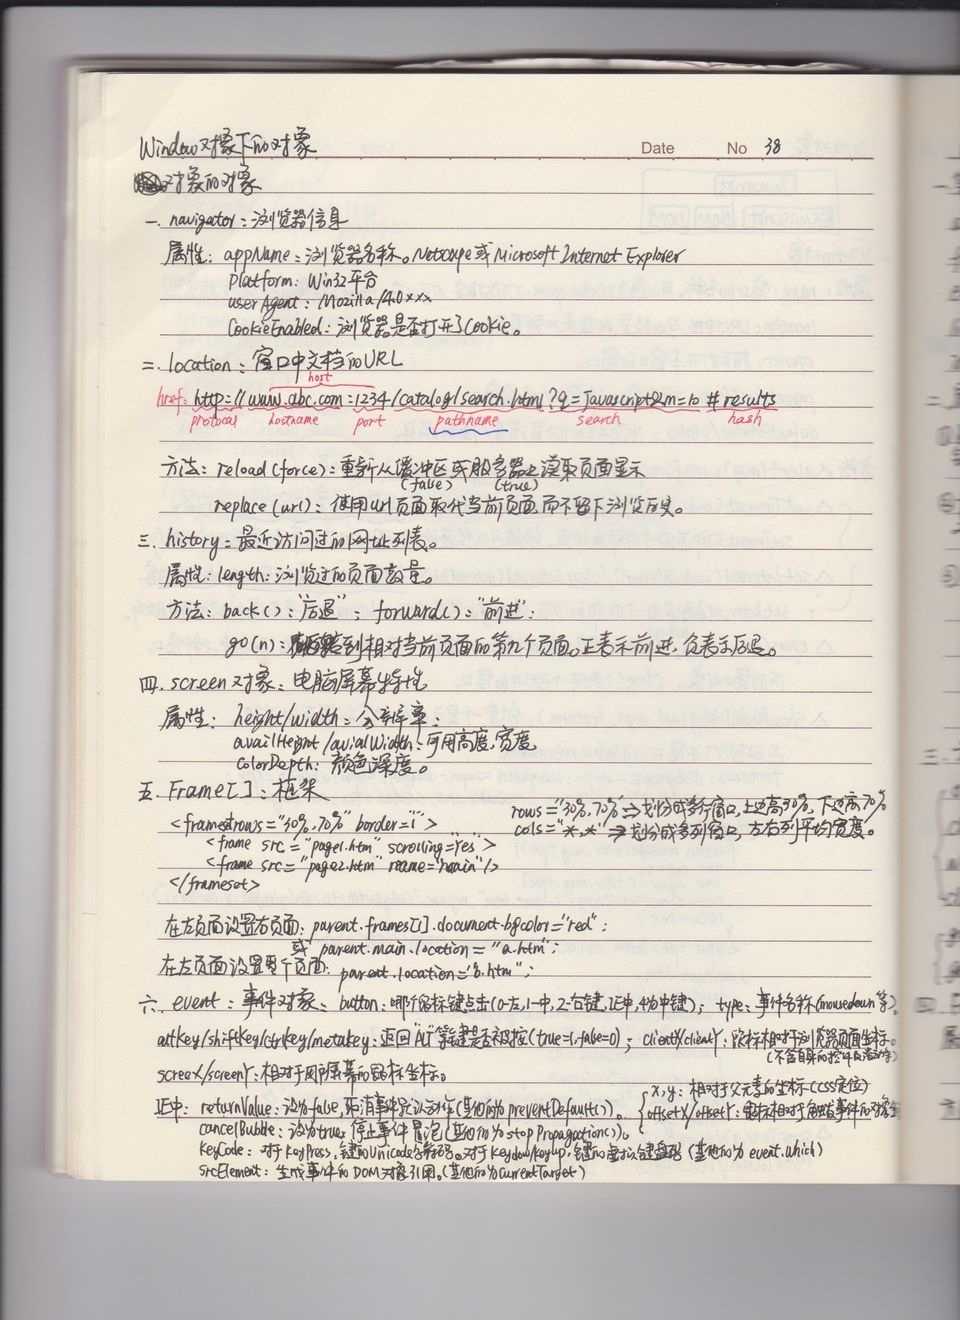 Window对象下的对象
Date No 38
对象的对象
一. navigator：浏览器信息
属性：appName：浏览器名称。Netscape或Microsoft Internet Explorer
platform：Win32平台
userAgent：Mozilla/4.0xxx
CookieEnabled：浏览器是否打开了Cookie。
二. location：窗口中文档的URL
host
href: http://www.abc.com:1234/catalog/search.html?q=Javascript&m=10#results
protocal hostname port pathname search hash
方法：reload(force)：重新从缓冲区或服务器上读取页面显示
(false) (true)
replace(url)：使用url页面取代当前页面而不留下浏览历史。
三. history：最近访问过的网址列表。
属性：length：浏览过的页面数量。
方法：back()："后退"；forward()："前进"；
go(n)：到相对当前页面的第n个页面。正表示前进，负表示后退。
四. screen对象：电脑屏幕特性
属性：height/width：分辨率；
availHeight/avialWidth：可用高度，宽度
colorDepth：颜色深度。
五. Frame[]：框架
rows="30%,70%"⇒划分成多行窗口，上边高30%，下边高70%
<framestrows="30%,70%" border="1">
cols="*,*"⇒划分成多列窗口，左右列平均宽度。
<frame src="page1.htm" scrolling="Yes">
<frame src="page2.htm" name="main"/>
</frameset>
在左页面设置右页面：parent.frames[1].document.bgcolor="red"；
或 parent.main.location="a.htm"；
在左页面设置整个页面：parent.location="b.htm"；
六. event：事件对象：button：哪个鼠标键点击(0-左,1-中,2-右键,IE中,4为中键)；type：事件名称(mousedown等)
altKey/shiftKey/ctrlKey/metakey：返回"Alt"等键是否被按(true=1,false=0)；clientX/clientY：鼠标相对于浏览器页面坐标。
screeX/screenY：相对于用户屏幕的鼠标坐标。
x,y：相对于父元素的坐标(CSS定位)
IE中：returnValue：设为false,取消事件默认动作(其他的为preventDefault())。
offsetX/offsetY：鼠标相对于触发事件的对象坐
cancelBubble：设为true,停止事件冒泡(其他的为stopPropagation())。
KeyCode：对于KeyPress,键的Unicode码。对于Keydown/Keyup,键的虚拟键盘码(其他的为event.which)
SrcElement：生成事件的DOM对象引用。(其他的为CurrentTarget)